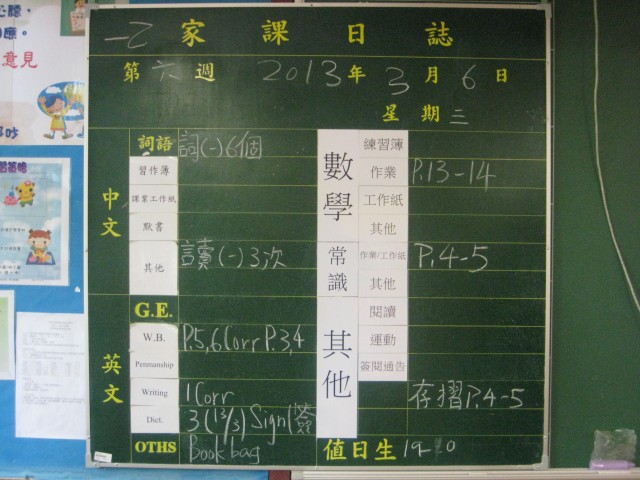 一乙 家課日誌
第六週 2013年3月6日
星期三
中文
詞語 詞(一)6個
習作簿
課業工作紙
默書
其他 讀(一)3次
英文
G.E.
W.B. P.5,6 Corr P.3,4
Penmanship
Writing 1 Corr
Dict. 3(13/3) Sign(簽
OTHS Book bag
數學
練習簿
作業 P.13-14
工作紙
其他
常識
作業/工作紙 P.4-5
其他
其他
閱讀
運動
簽閱通告
存摺P.4-5
值日生 19-
意見